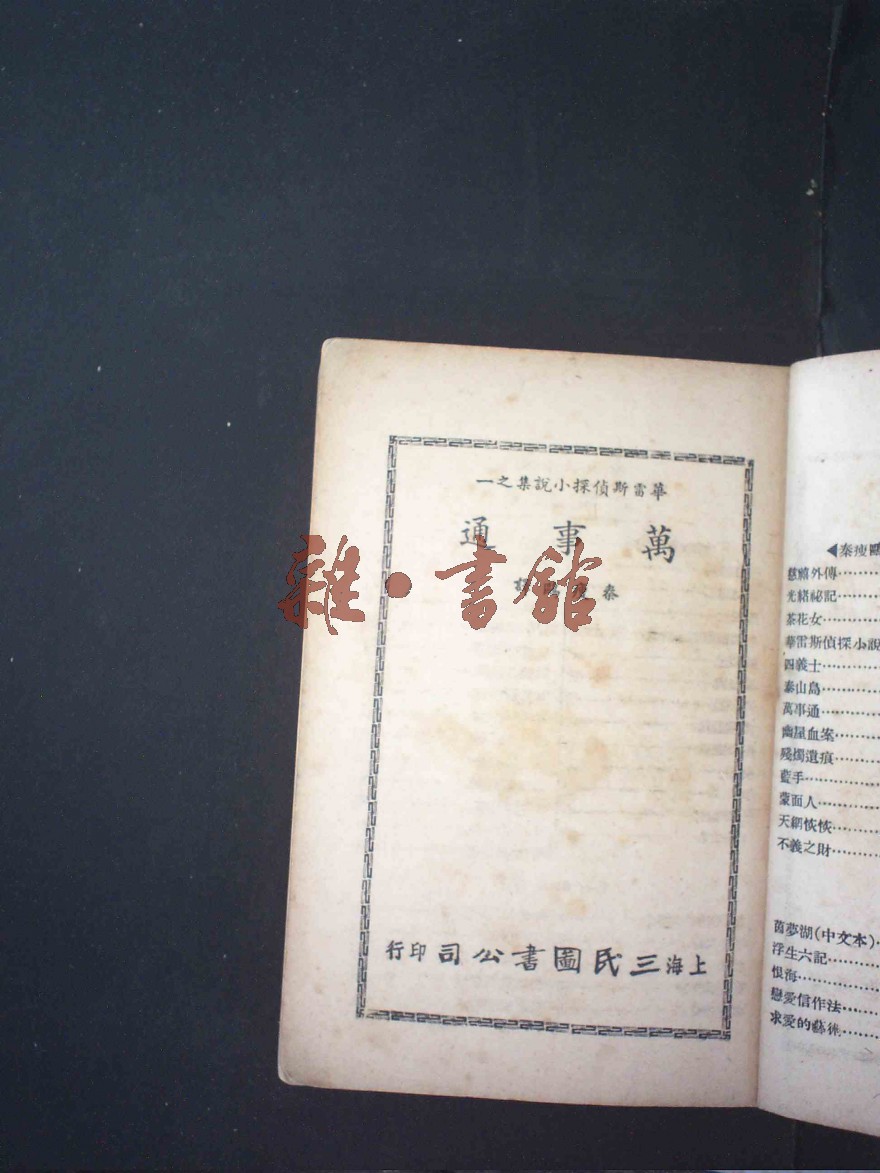 華雷斯偵探小說集之一
萬事通
秦瘦鷗
上海三民圖書公司印行
雜·書館
◀秦瘦鷗
慈禧外傳
光緒祕記
茶花女
華雷斯偵探小說
四義士
泰山島
萬事通
幽屋血案
殘燭遺痕
藍手
蒙面人
天網恢恢
不義之財
茵夢湖(中文本)
浮生六記
恨海
戀愛信作法
求愛的藝術